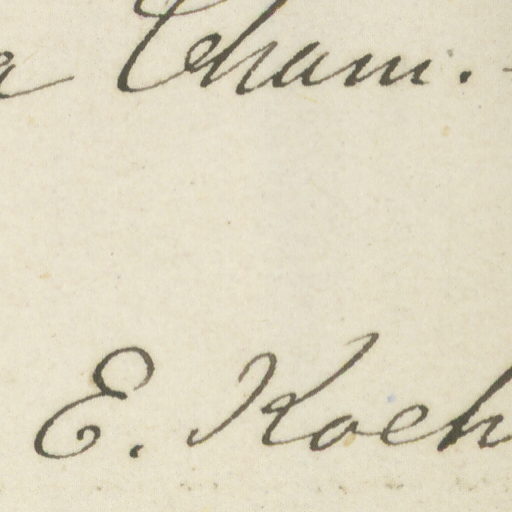 a Cham.
E. Koeh